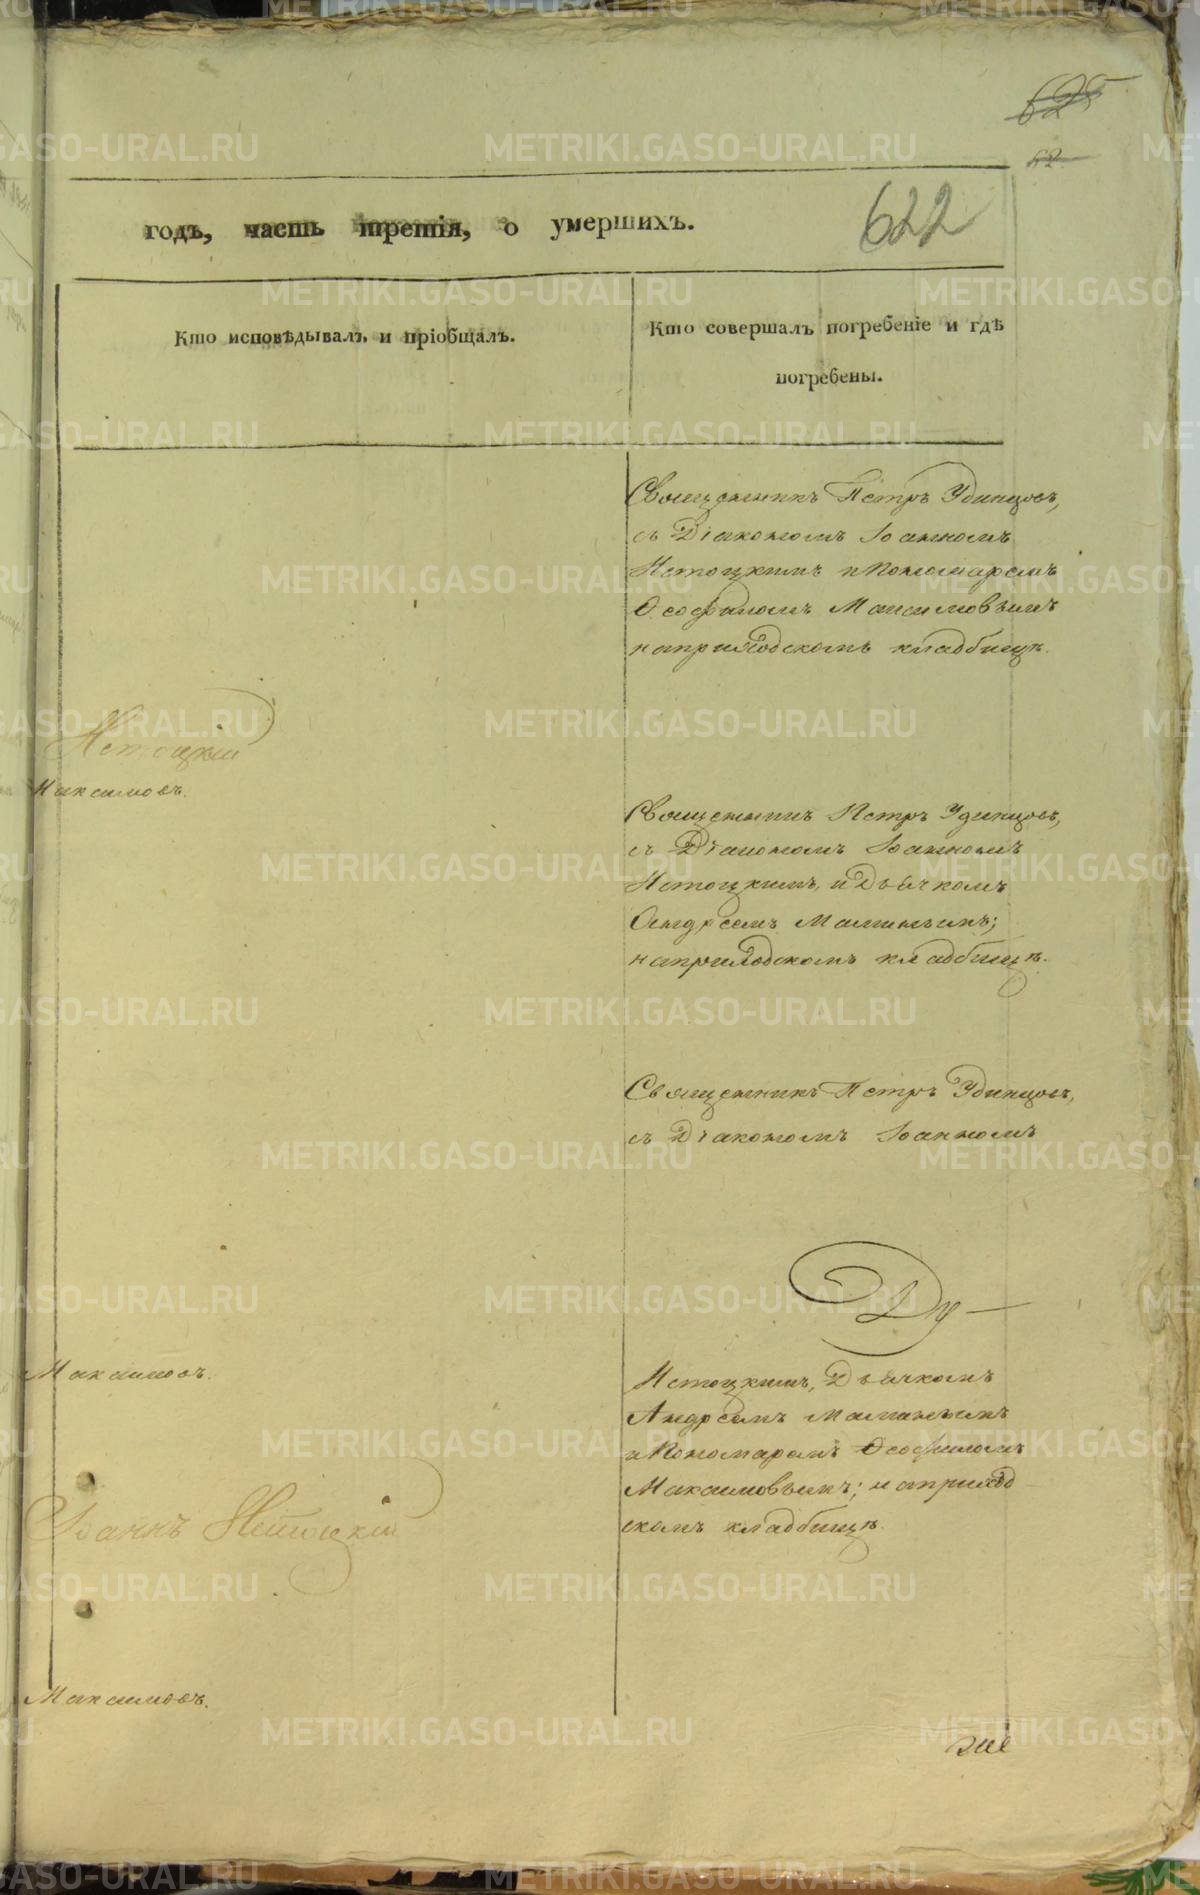 625
62
622
годъ, часть третія, о умершихъ.
Кто исповѣдывалъ и пріобщалъ.
Кто совершалъ погребеніе и гдѣ
погребены.
Священникъ Петръ Удинцовъ,
съ Діакономъ Іоанномъ
Истоцкимъ и Пономаремъ
Ѳеофиломъ Максимовымъ
на приходскомъ кладбищѣ.
Истоцкій
Максимовъ.
Священникъ Петръ Удинцовъ,
съ Діакономъ Іоанномъ
Истоцкимъ, и Дьячкомъ
Андреемъ Маминымъ;
на приходскомъ кладбищѣ.
Священникъ Петръ Удинцовъ,
съ Діакономъ Іоанномъ
Максимовъ.
Истоцкимъ, Дьячкомъ
Андреемъ Маминымъ
и Пономаремъ Ѳеофиломъ
Максимовымъ; на приход
скомъ кладбищѣ.
Іоаннъ Истоцкій
Максимовъ.
METRIKI.GASO-URAL.RU